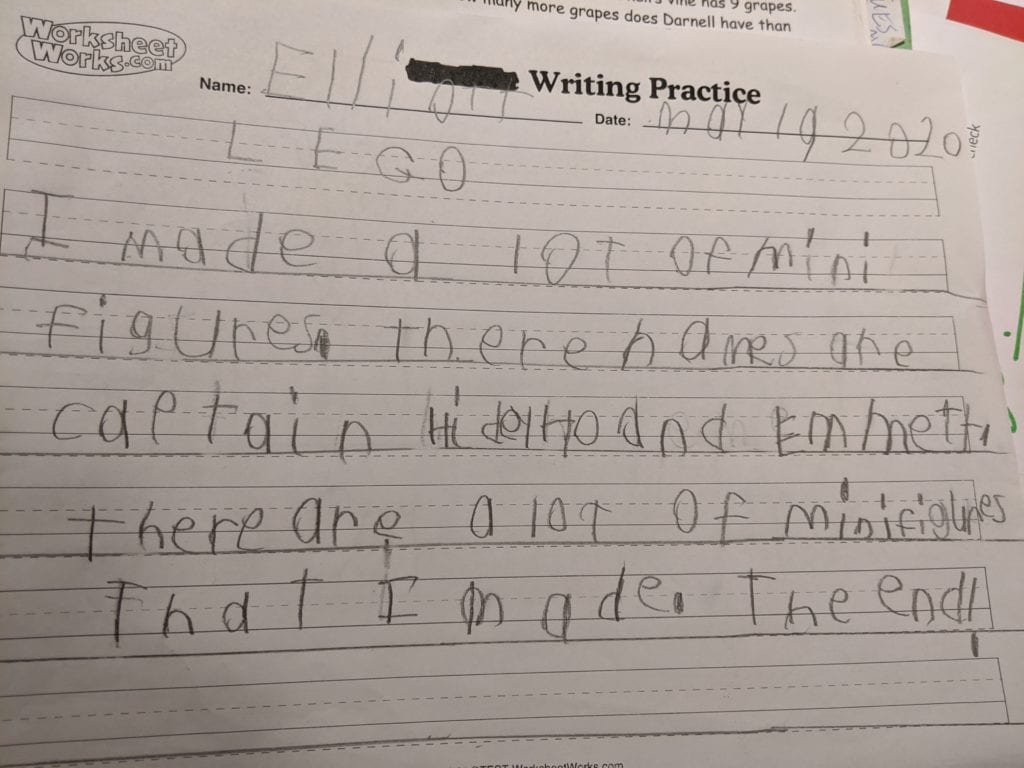 vine has 9 grapes.
many more grapes does Darnell have than
Worksheet
Works.com
Name: Elliott
Writing Practice
Date: Mar 19 2020
LEGO
I made a lot of mini
figures. there names are
captain Hidelto and Emmett.
there are a lot of minifigures
That I made. The end!
WorksheetWorks.com